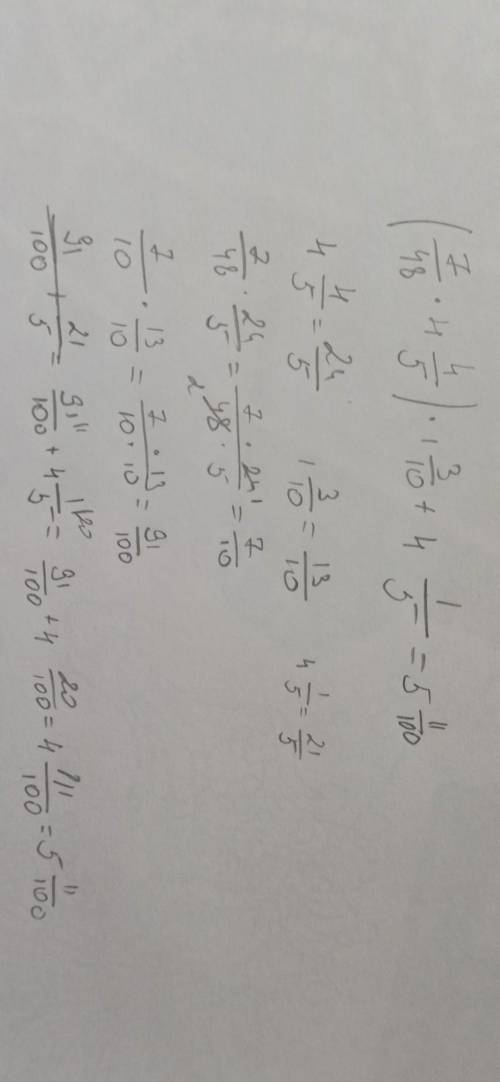 (7/48 · 4 4/5) · 1 3/10 + 4 1/5 = 5 11/100
4 4/5 = 24/5 1 3/10 = 13/10 4 1/5 = 21/5
7/48 · 24/5 = 7 · 24 1/2 48 · 5 = 7/10
7/10 · 13/10 = 7 · 13/10 · 10 = 91/100
91/100 + 21/5 = 91/100 + 4 1/5 = 91/100 + 4 20/100 = 4 111/100 = 5 11/100